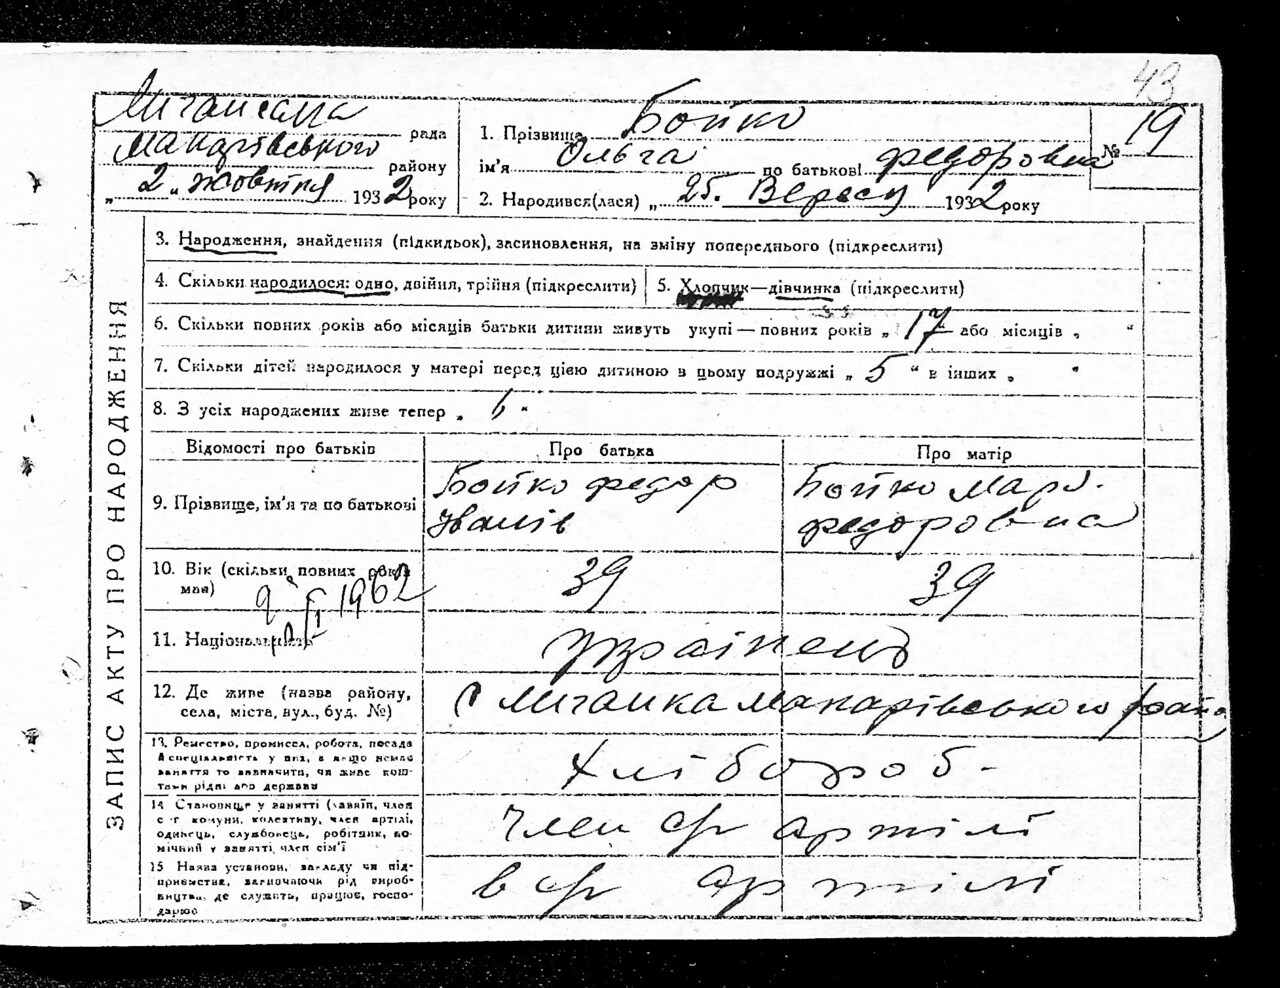 43
Мигальська рада
Макарівського району
„ 2 „ Жовтня 1932 року
1. Прізвище Бойко
ім'я Ольга по батькові Федоровна
2. Народився(лася) „ 25. Вересу 1932 року
№ 19
ЗАПИС АКТУ ПРО НАРОДЖЕННЯ
3. Народження, знайдення (підкидьок), засиновлення, на зміну попереднього (підкреслити)
4. Скільки народилося: одно, двійня, трійня (підкреслити)
5. Хлопчик—дівчинка (підкреслити)
6. Скільки повних років або місяців батьки дитини живуть укупі — повних років „ 17 " або місяців „ "
7. Скільки дітей народилося у матері перед цією дитиною в цьому подружжі „ 5 " в інших „ "
8. З усіх народжених живе тепер „ "
Відомості про батьків
Про батька
Про матір
9. Прізвище, ім'я та по батькові
Бойко Федор
Іванів
Бойко Мар.
Федоровна
10. Вік (скільки повних років
має)
39
39
1962
11. Національність
українець
12. Де живе (назва району,
села, міста, вул., буд. №)
с Мигалка Макарівського район
13. Ремество, промисел, робота, посада
й спеціяльність у них, а якщо немає
заняття то зазначити, чи живе кош-
тами рідні або держави
Хлібороб-
14 Становище у занятті (хазяїн, член
с-г комуни, колективу, член артілі,
одинець, службовець, робітник, по-
мічний у занятті, член сім'ї
член с/г артілі
15 Назва установи, закладу чи під-
приємства, зазначаючи рід вироб-
ництва, де служить, працює, госпо-
дарює
в с/г артілі